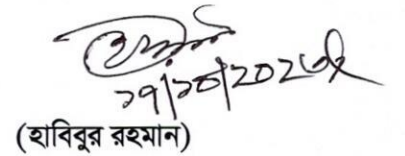 ১৭/১০/২০২৩ইং
(হাবিবুর রহমান)